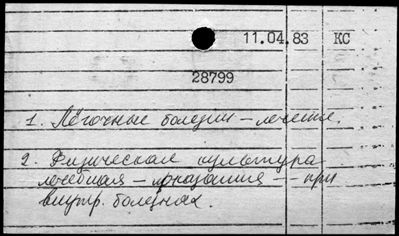 11.04.83 КС
28799
1. Лёгочные болезни – лечение.
2. Физическая культура
лечебная – – при
внутр. болезнях.